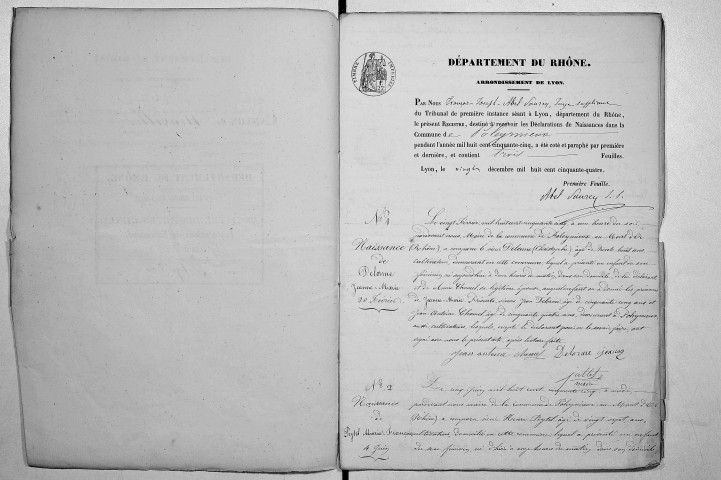 DÉPARTEMENT DU RHÔNE.
ARRONDISSEMENT DE LYON.
PAR NOUS François Joseph Abel Juge suppléant
du Tribunal de première instance séant à Lyon, département du Rhône,
le présent REGISTRE, destiné à recevoir les Déclarations de Naissances dans la
Commune de Poleymieux
pendant l'année mil huit cent cinquante-cinq, a été coté et paraphé par première
et dernière, et contient trois Feuilles.
Lyon, le vingt décembre mil huit cent cinquante-quatre.
Première Feuille.
Abel
N° 1
Naissance
de
Delorme
Jeanne Marie
20 Février
Le vingt Février mil huit cent cinquante cinq à une heure du soir
pardevant nous, Maire de la commune de Poleymieux au Mont d'Or
(Rhône) a comparu le sieur Delorme (Christophe) âgé de trente huit ans
cultivateur, demeurant en cette commune lequel a présenté un enfant du sexe
féminin né aujourd'hui à heures du matin, dans son domicile, de lui déclarant
et de Marie son légitime épouse, auquel enfant on a donné les prénoms
de Jeanne Marie. Présents sieurs Jean Delorme âgé de cinquante cinq ans et
Jean Antoine âgé de cinquante quatre ans, demeurant à Poleymieux
cultivateurs, lequels, excepté le déclarant pour ne le savoir faire, ont
signé avec nous le présent acte après lecture faite.
Jean antoine Delorme
maire
N° 2
Naissance
de
Peytel Marie Francoise
4 Juin
Le cinq Juin mil huit cent cinquante cinq à midi,
pardevant nous maire de la commune de Poleymieux au Mont d'Or
(Rhône) a comparu sieur Henri Peytel âgé de vingt sept ans,
cultivateur, domicilié en cette commune, lequel a présenté un enfant
du sexe féminin, né d'hier à onze heures du matin, dans son domicile